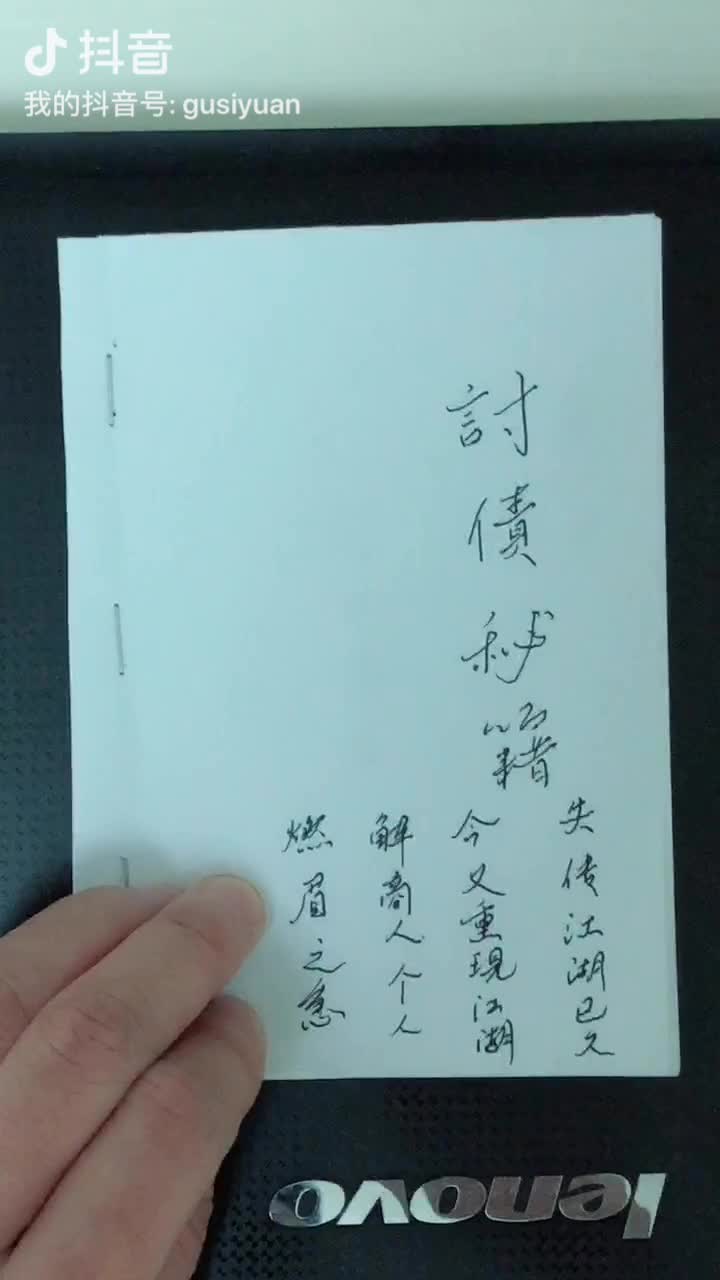 抖音
我的抖音号: gusiyuan
討債秘籍
失传江湖已久
今又重現江湖
解商人个人
燃眉之急
lenovo